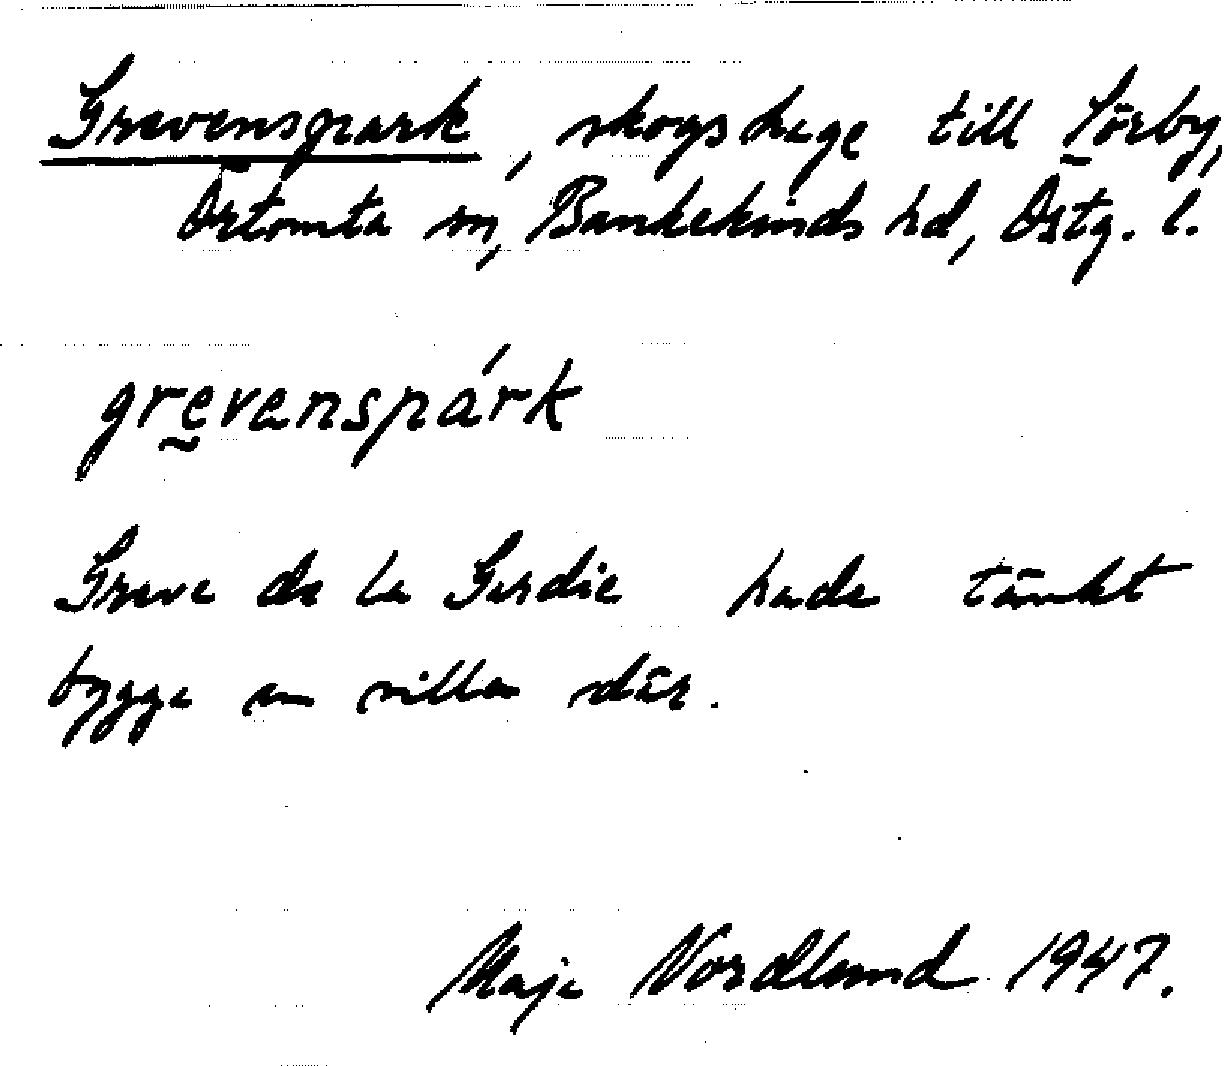 Grevenspark, skogshage till Sörby,
Örtomta sn, Bankekinds hd, Östg. l.
grevenspárk
Greve de la Gardie hade tänkt
bygga en villa där.
Maja Nordlund 1947.